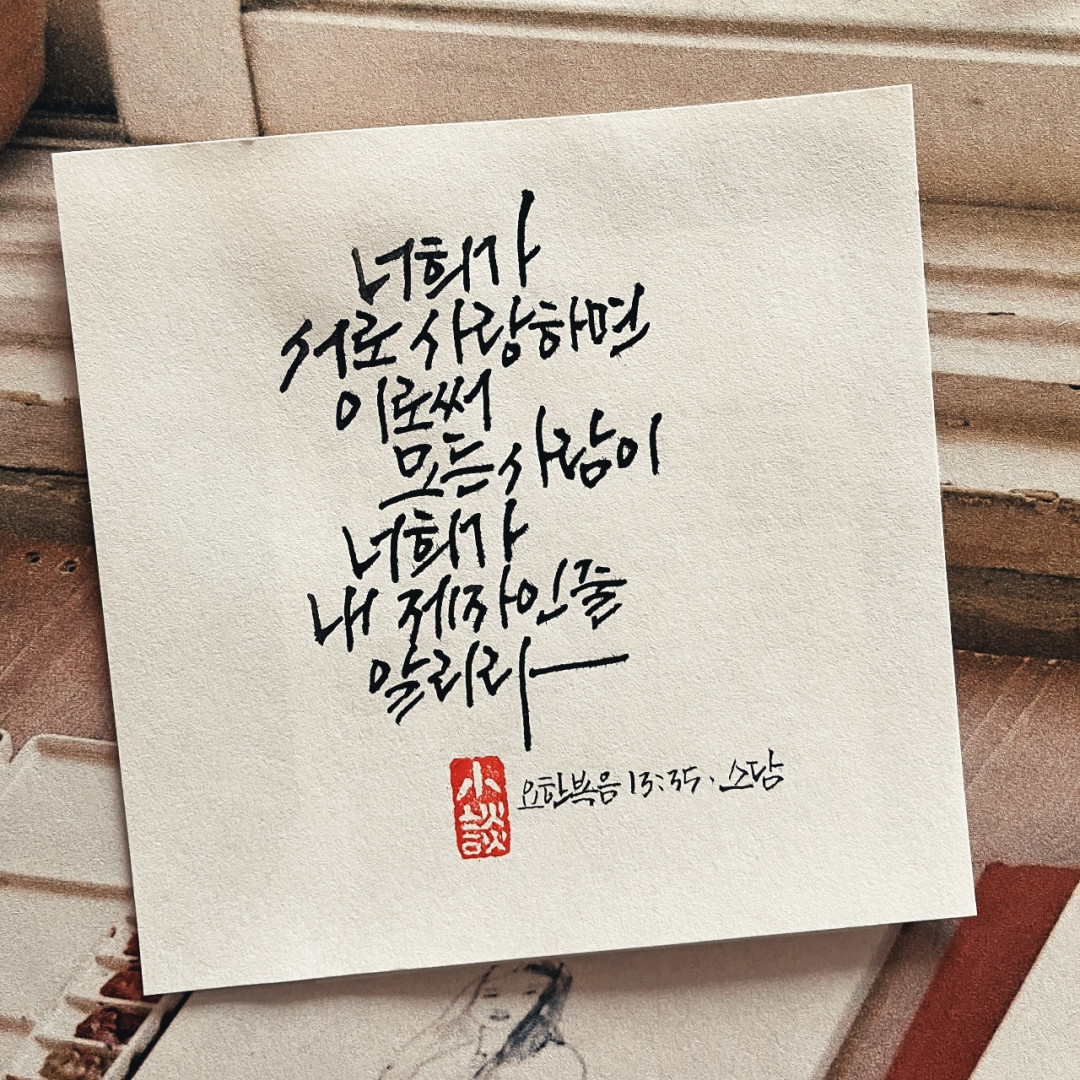 너희가
서로 사랑하면
이로써
모든 사람이
너희가
내 제자인줄
알리라
小談
요한복음 13:35. 소담